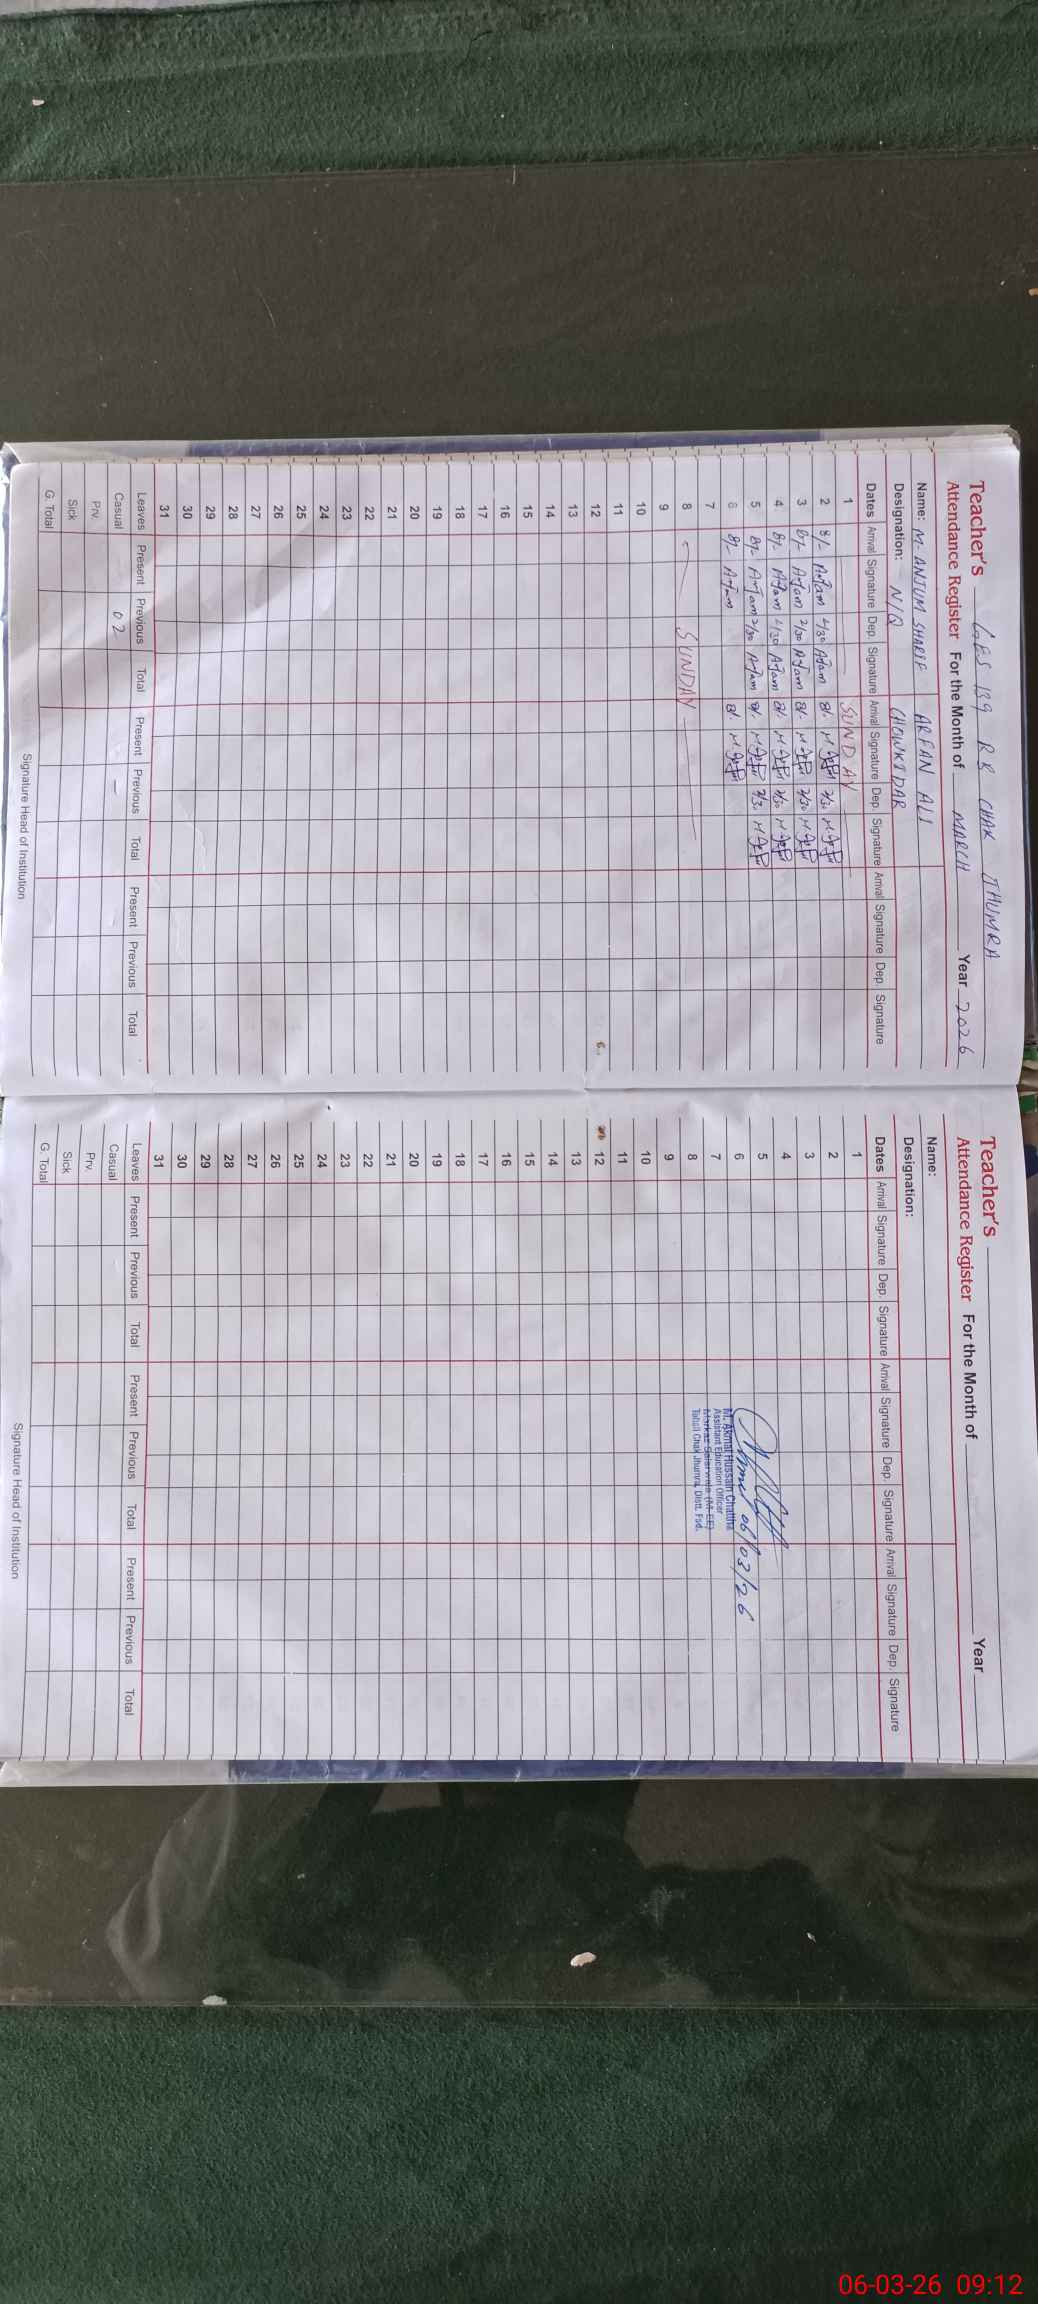 Teacher's GES 139 RB CHAK JHUMRA
Attendance Register For the Month of MARCH Year 2026
Name: M. ANJUM SHARIF ARFAN ALI
Designation: N/Q CHOWKIDAR
Dates Arrival Signature Dep. Signature Arrival Signature Dep. Signature Arrival Signature Dep. Signature
1 SUNDAY
2 8/- Anjam 2/30 Anjam 8/- 2/30
3 8/- Anjam 2/30 Anjam 8/- 2/30
4 8/- Anjam 2/30 Anjam 8/- 2/30
5 8/- Anjam 2/30 Anjam 8/- 2/30
6 8/- Anjam 8/-
7
8 SUNDAY
9
10
11
12
13
14
15
16
17
18
19
20
21
22
23
24
25
26
27
28
29
30
31
Leaves Present Previous Total Present Previous Total Present Previous Total
Casual 02 –
Prv.
Sick
G. Total
Signature Head of Institution
Teacher's
Attendance Register For the Month of Year
Name:
Designation:
Dates Arrival Signature Dep. Signature Arrival Signature Dep. Signature Arrival Signature Dep. Signature
1
2
3
4
5
6 06/03/26
M. Akmal Hussain Chattha
7 Assistant Education Officer
Markaz Salarwala (M-EE)
8 Tehsil Chak Jhumra, Distt. Fsd.
9
10
11
12
13
14
15
16
17
18
19
20
21
22
23
24
25
26
27
28
29
30
31
Leaves Present Previous Total Present Previous Total Present Previous Total
Casual
Prv.
Sick
G. Total
Signature Head of Institution
06-03-26 09:12